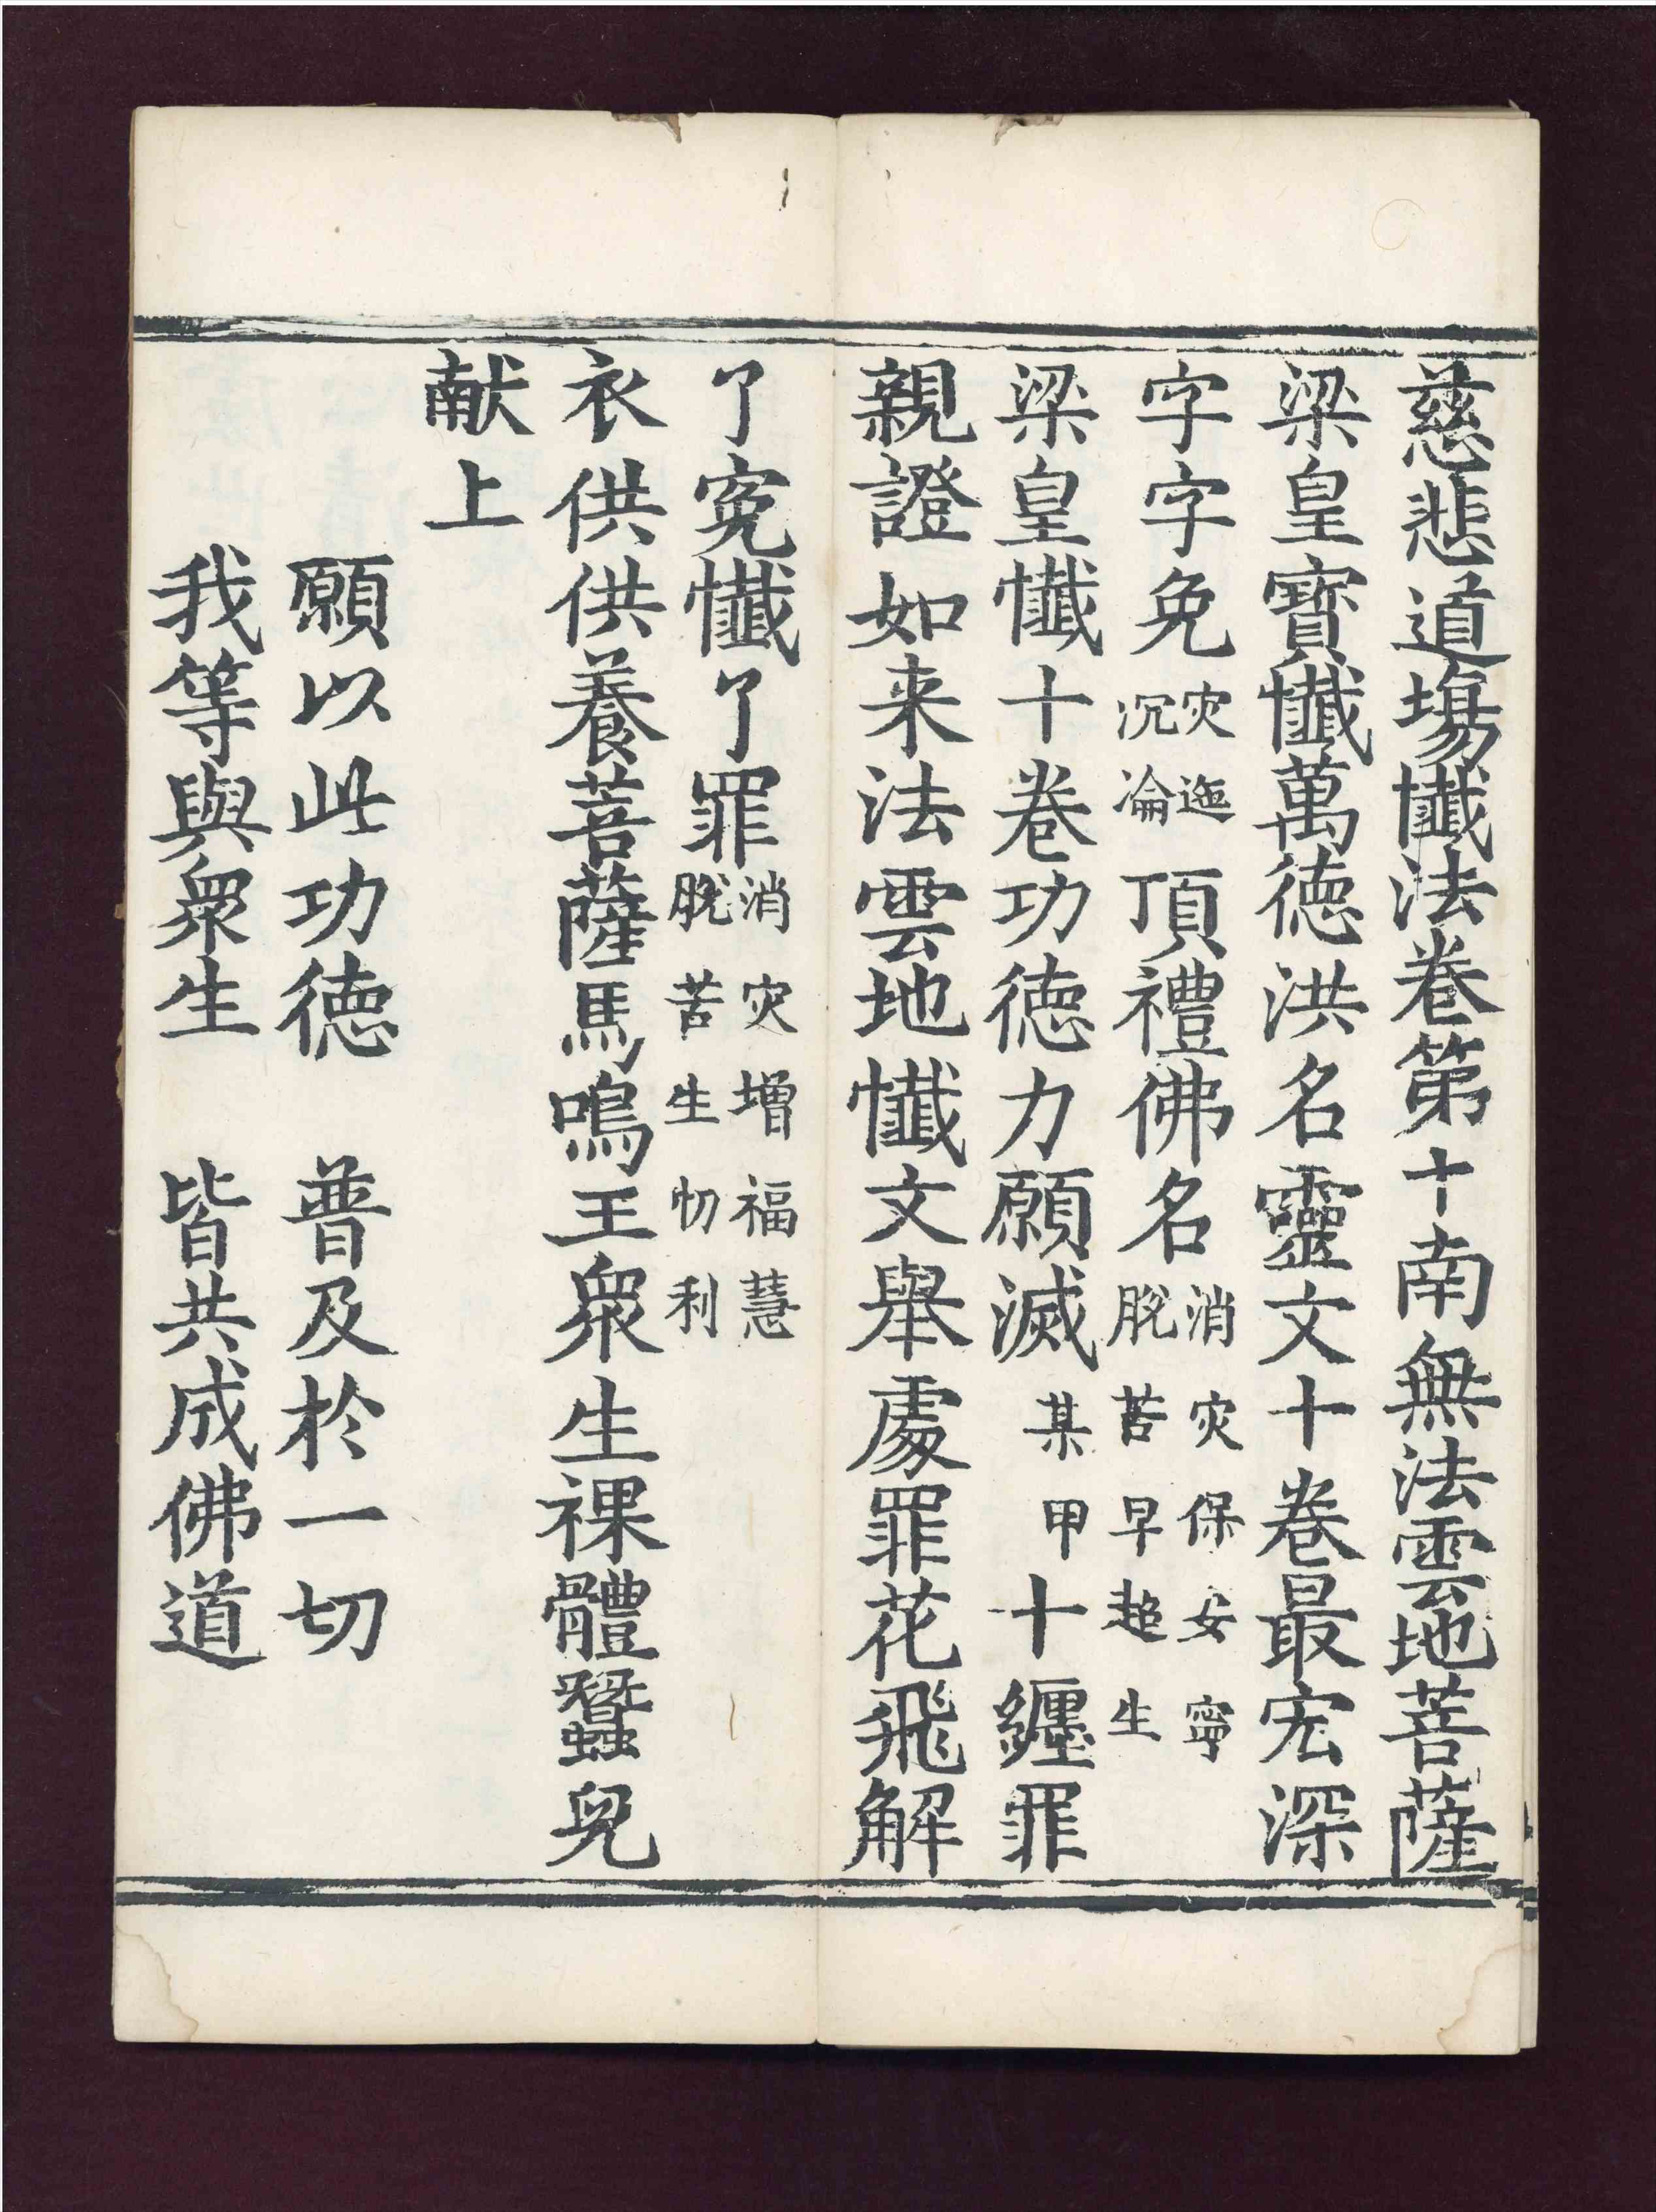 慈悲道場懺法卷第十南無法雲地菩薩
梁皇寶懺萬德洪名靈文十卷最宏深
字字免灾迍沉淪頂禮佛名消灾保安寧脫苦早超生
梁皇懺十卷功德力願滅某甲十纏罪
親證如来法雲地懺文舉處罪花飛解
了寃懺了罪消灾增福慧脫苦生忉利
衣供供養菩薩馬鳴王衆生裸體蠶兒
献上
願以此功德　普及於一切
我等與衆生　皆共成佛道